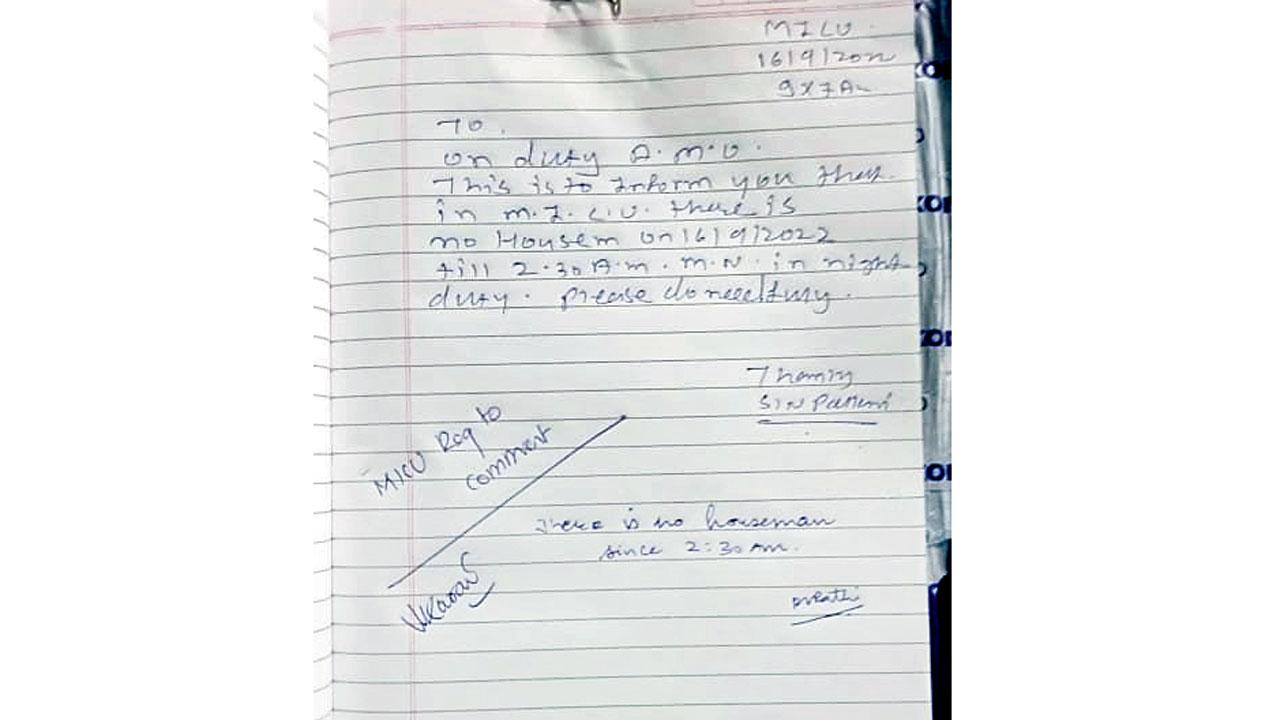 MICU.
16/9/2022
TO.
on duty A.M.O.
This is to Inform you that
in M.I.C.U. there is
no Housem on 16/9/2022
till 2.30 A.m. M.N. in night
duty. please do needfuly.
SIN
MICU Req to
comment
There is no houseman
since 2:30 AM.
preathi